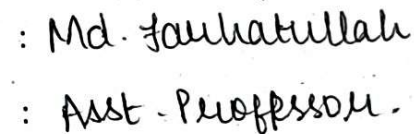 : Md. Farhatullah
: Asst. Professor.